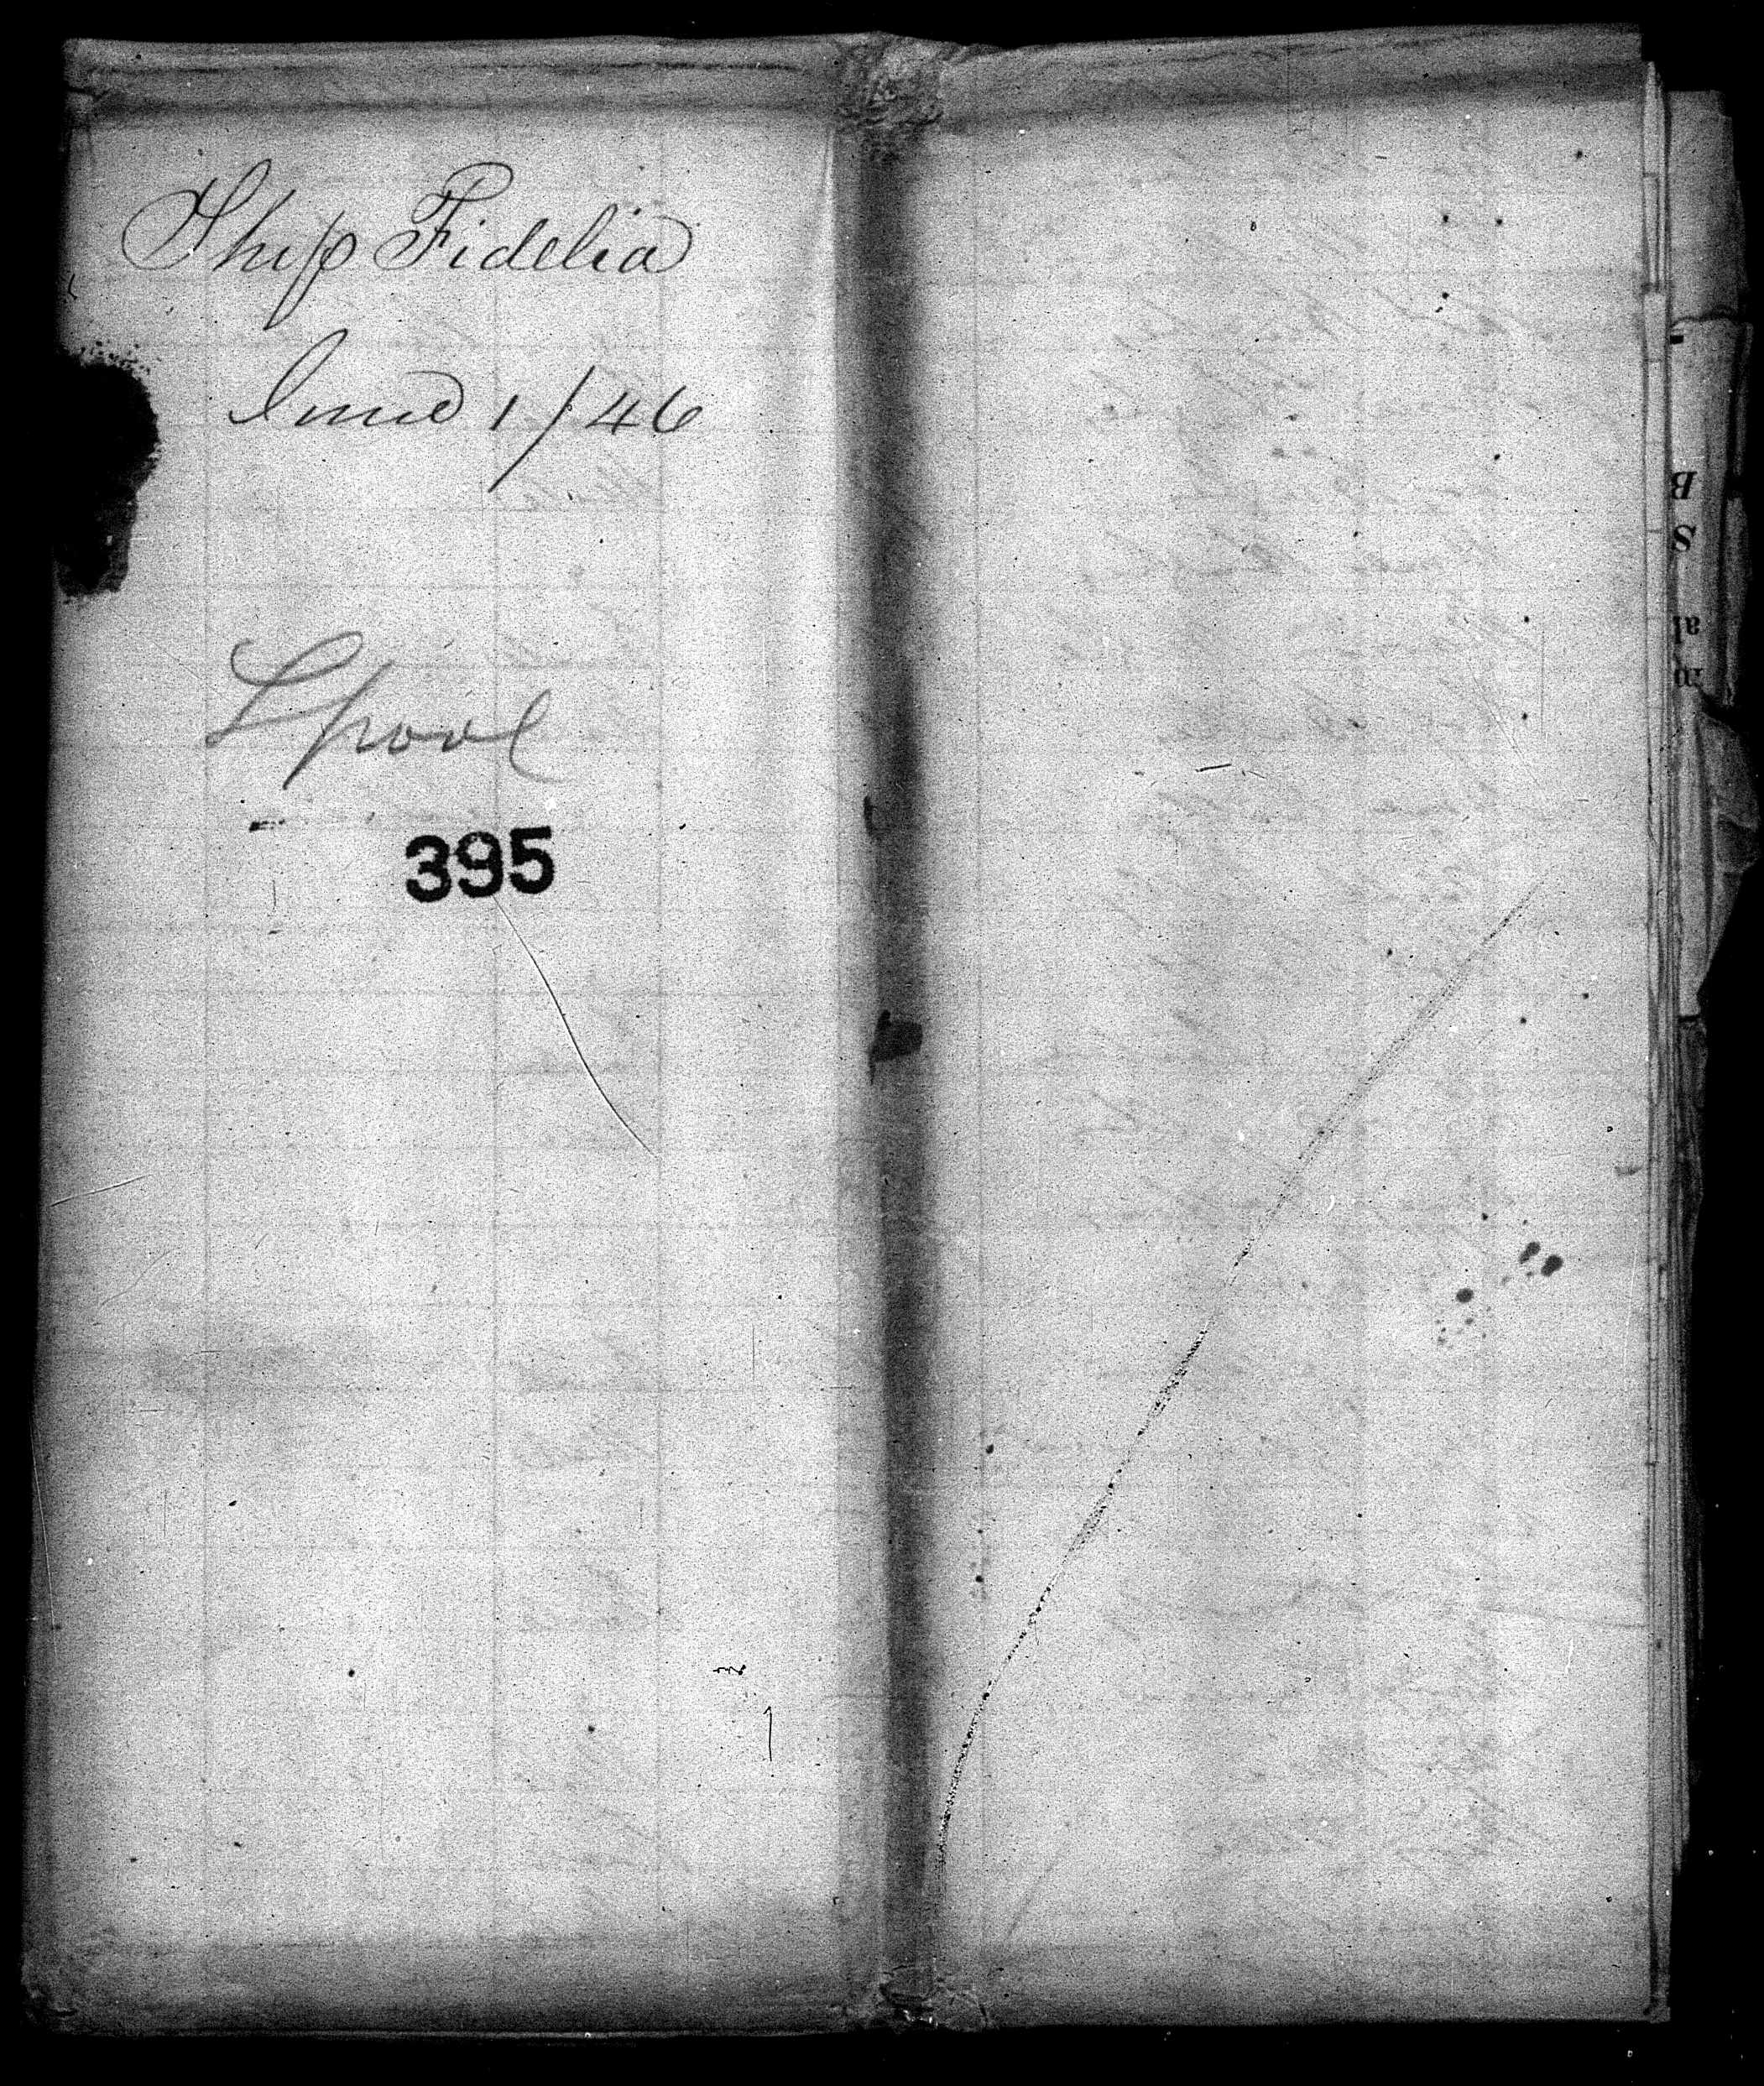 Ship Fidelia
June 1/46
Lpool
395
B
S
al